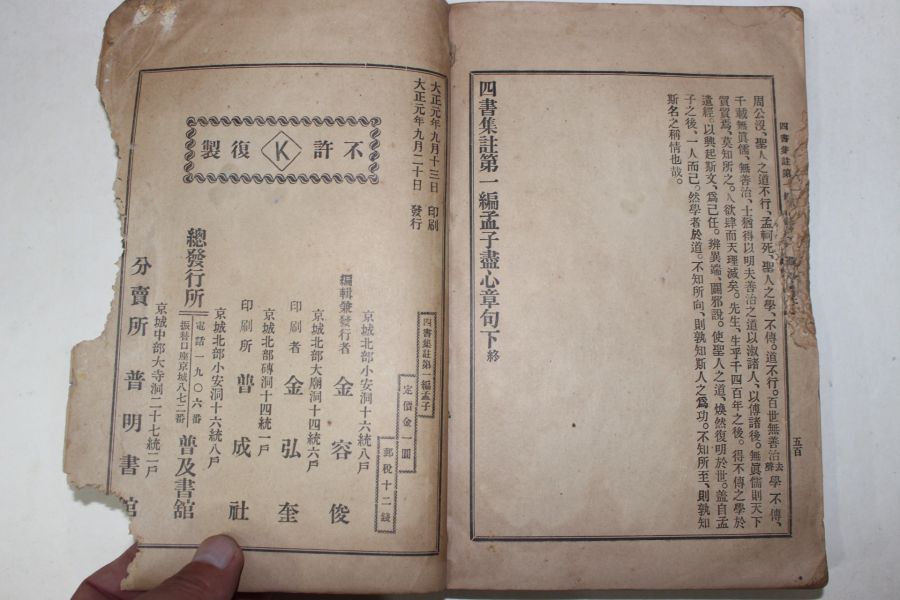 四書集註第
五百
周公沒、聖人之道不行、孟軻死、聖人之學、不傳。道不行。百世無善治去聲學不傳、
千載無眞儒、無善治、士猶得以明夫善治之道以淑諸人、以傳諸後。無眞儒則天下
貿貿焉、莫知所之。人欲肆而天理滅矣。先生、生乎千四百年之後。得不傳之學於
遺經。以興起斯文、爲己任。辨異端、闢邪說。使聖人之道、煥然復明於世。盖自孟
子之後、一人而已。然學者於道。不知所向、則孰知斯人之爲功。不知所至、則孰知
斯名之稱情也哉。
四書集註第一編孟子盡心章句下終
大正元年九月十三日 印刷
大正元年九月二十日 發行
不許K復製
四書集註第一編孟子
定價金一圓
郵稅十二錢
京城北部小安洞十六統八戶
編輯兼發行者 金容俊
京城北部大廟洞十四統六戶
印刷者 金弘奎
京城北部磚洞十四統一戶
印刷所 普成社
京城北部小安洞十六統八戶
總發行所 電話一九〇六番 振替口座京城八七二番 普及書舘
京城中部大寺洞二十七統二戶
分賣所 普明書舘